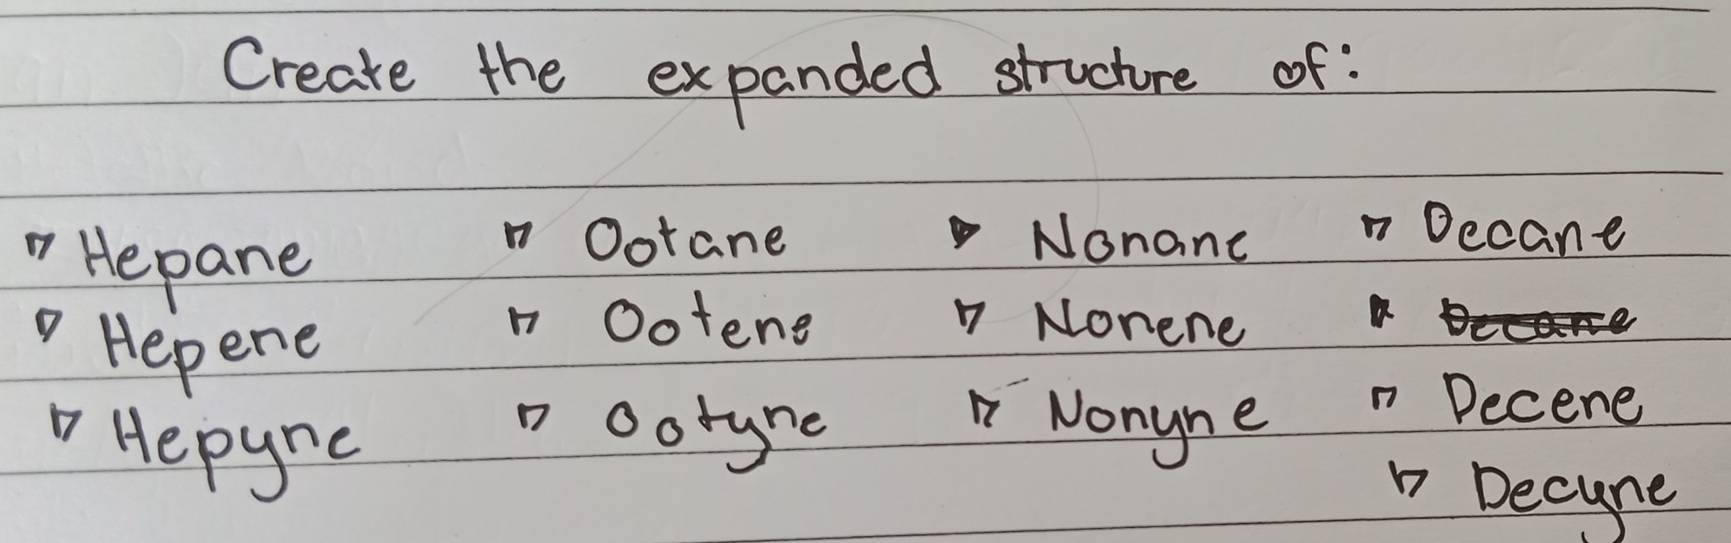 Create the expanded structure of:
Hepane Ootane Nonane Decane
Hepene Ootene Nonene
Hepyne Ootyne Nonyne Decene
Decyne